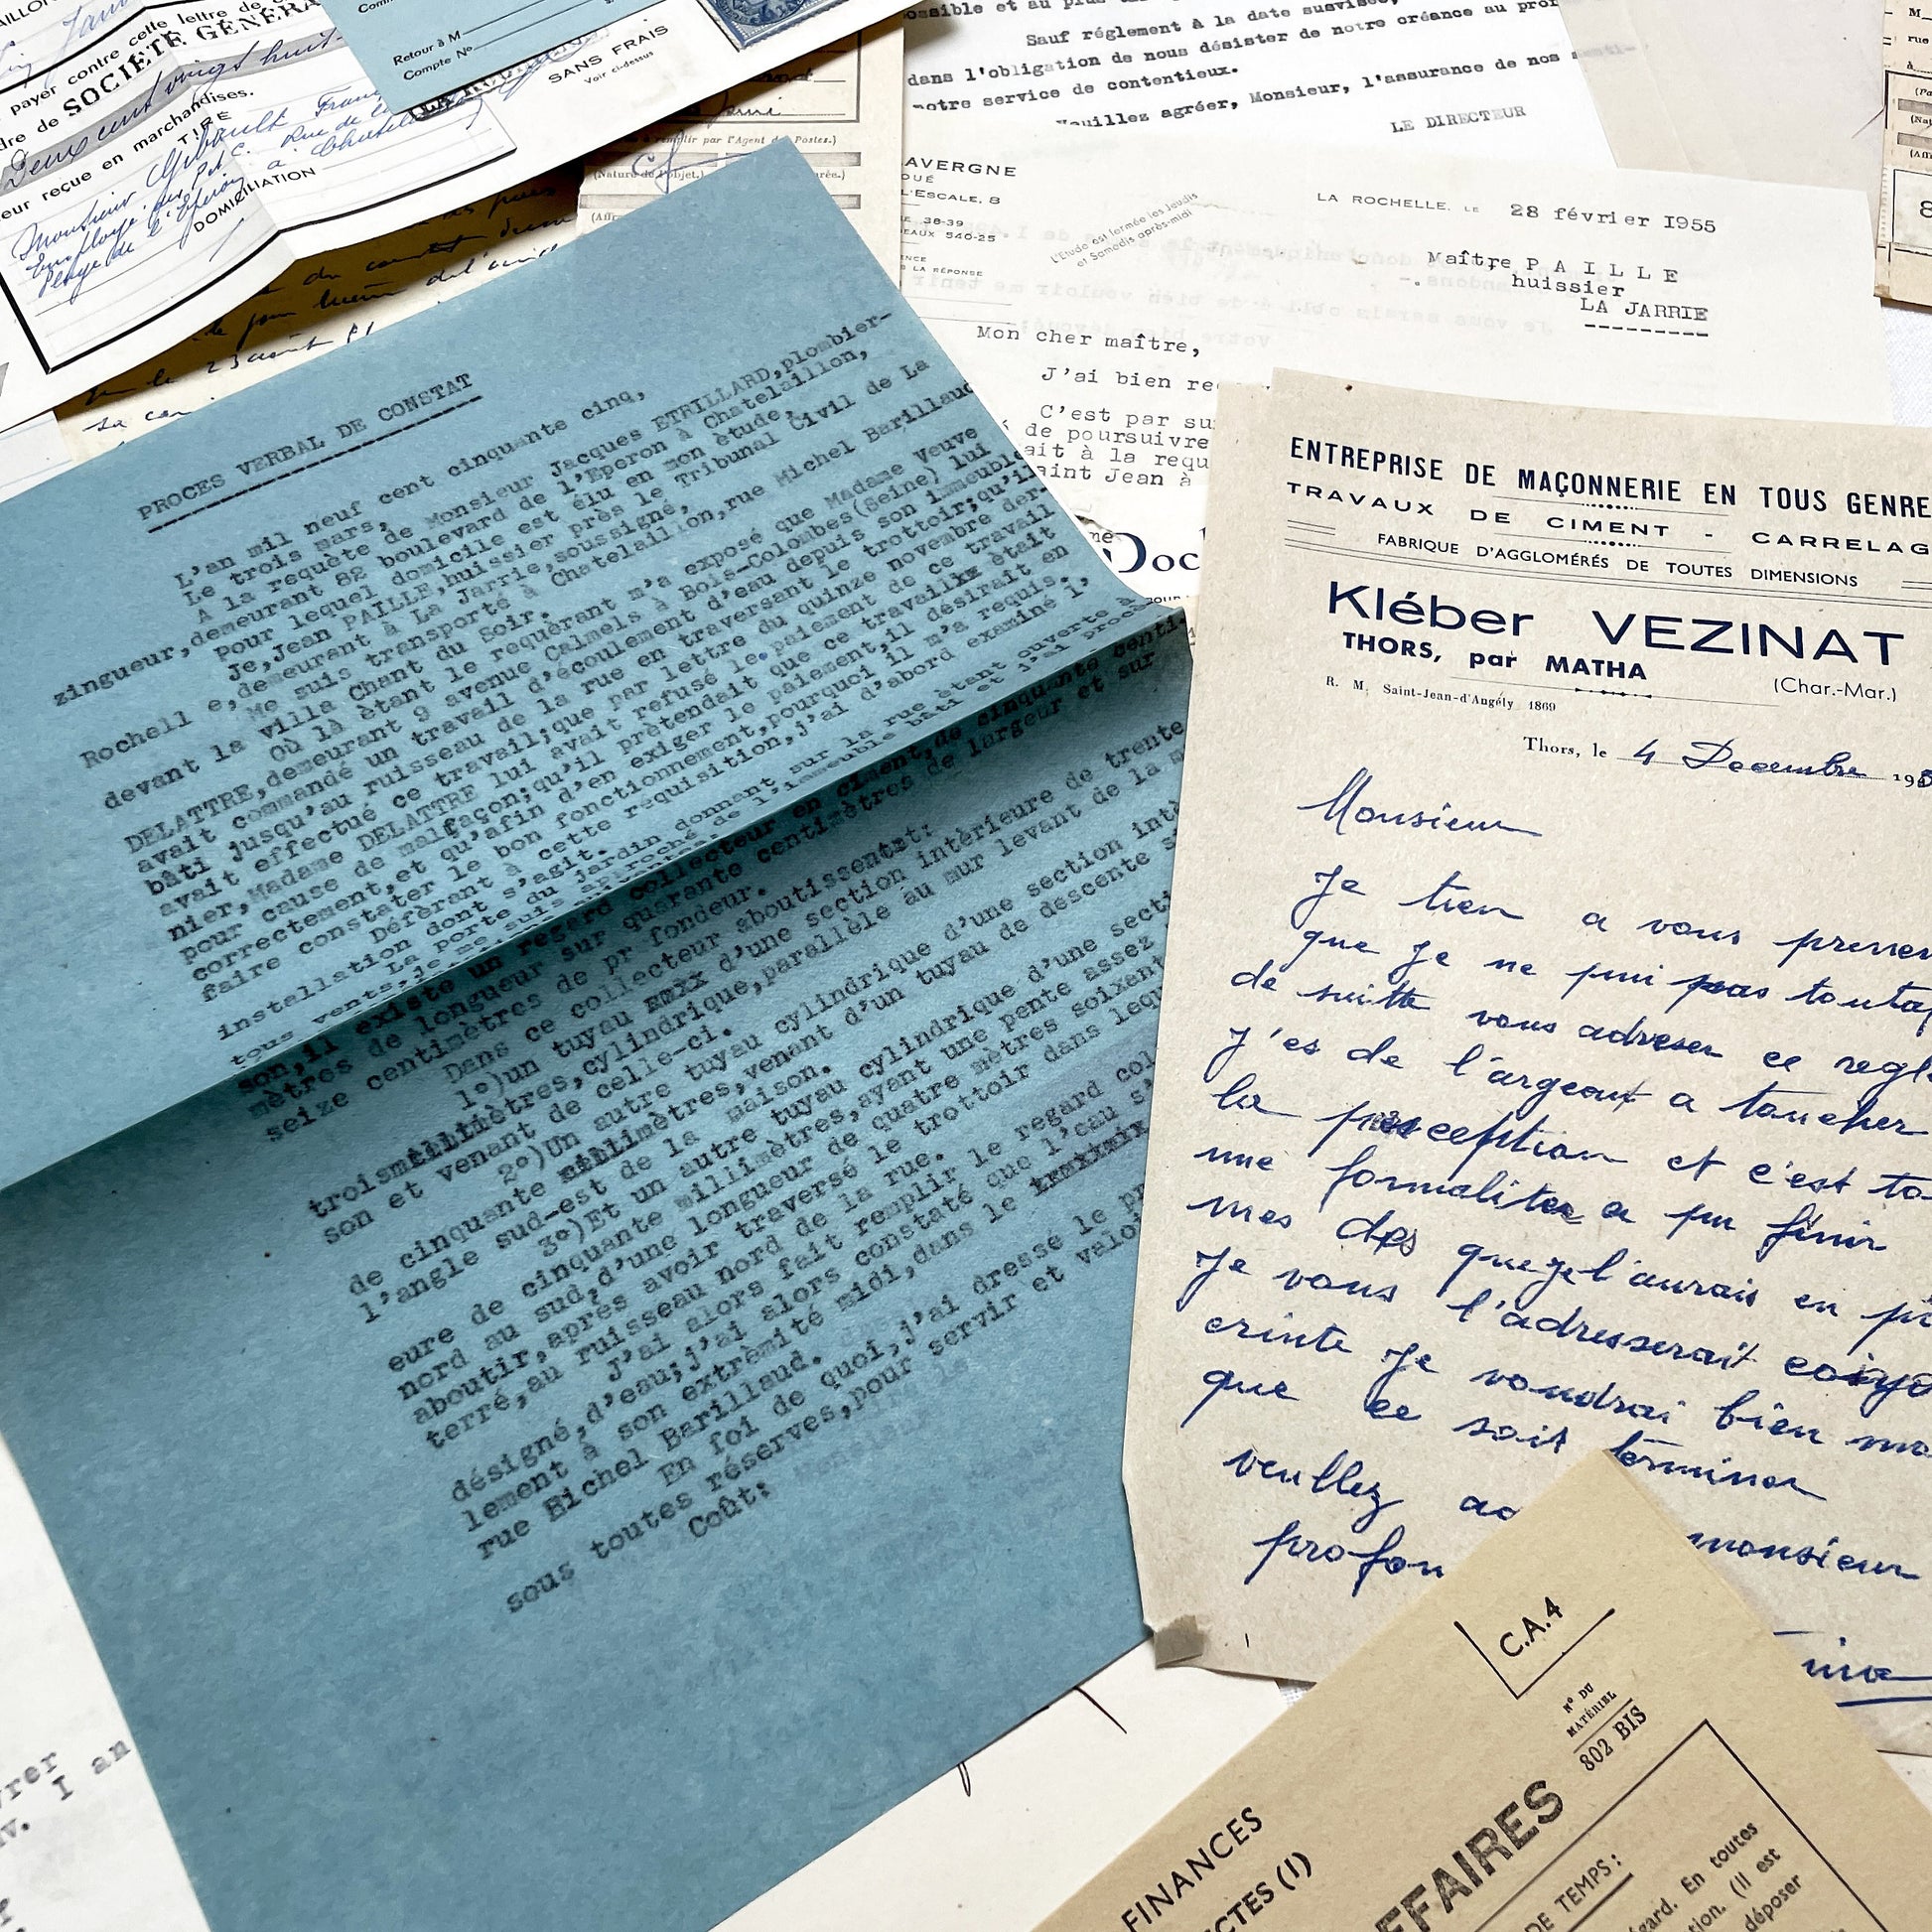 payer contre cette lettre de
SOCIÉTÉ GÉNÉRA
Deux cent vingt huit
eur reçue en marchandises.
TIRÉ
Monsieur Gibault
Employé des P.t.t. Rue de la
Plage de l'Eperon à Chatelaillon
DOMICILIATION
Retour à M
Compte N°
SANS FRAIS
Voir ci-dessus
le 23 août
(Nature de l'objet.)
remplir par l'Agent des Postes.)
ossible et au plus
Sauf réglement à la date susvisée,
dans l'obligation de nous désister de notre créance au prof
notre service de contentieux.
Veuillez agréer, Monsieur, l'assurance de nos senti-
LE DIRECTEUR
AVERGNE
OUÉ
L'ESCALE, 8
38-39
EAUX 540-25
ENCE
S LA RÉPONSE
L'Etude est fermée les Jeudis
et Samedis après-midi
LA ROCHELLE, LE 28 février 1955
Maître P A I L L E
huissier
LA JARRIE
Mon cher maître,
J'ai bien re
C'est par su
de poursuivre
ait à la requ
aint Jean à
Doc
PROCES VERBAL DE CONSTAT
L'an mil neuf cent cinquante cinq,
Le trois mars,
A la requête de Monsieur Jacques ETRILLARD,plombier-
zingueur,demeurant 82 boulevard de l'Eperon à Chatelaillon,
pour lequel domicile est élu en mon ètude,
Je,Jean PAILLE,huissier près le Tribunal Civil de La
Rochell e,demeurant à La Jarrie,soussigné,
Me suis transporté à Chatelaillon,rue Michel Barillaud
devant la villa Chant du Soir.
Où là ètant le requèrant m'a exposé que Madame Veuve
DELATTRE,demeurant 9 avenue Calmels à Bois-Colombes(Seine) lui
avait commandé un travail d'écoulement d'eau depuis son immeuble
bâti jusqu'au ruisseau de la rue en traversant le trottoir;qu'il
avait effectué ce travail;que par lettre du quinze novembre der-
nier,Madame DELATTRE lui avait refusé le paiement de ce travail
pour cause de malfaçon;qu'il prètendait que ce travailxx était
correctement,et qu'afin d'en exiger le paiement,il désirait en
faire constater le bon fonctionnement,pourquoi il m'a requis.
Défèrant à cette requisition,j'ai d'abord examiné l'
installation dont s'agit.
La porte du jardin donnant sur la rue ètant ouverte à
tous vents,je me suis approché de l'immeuble bâti et j'ai procé
son,il existe un regard collecteur en ciment,de cinquante centi-
mètres de longueur sur quarante centimètres de largeur et sur
seize centimètres de pr fondeur.
Dans ce collecteur aboutissent:
1°)un tuyau d'une section intèrieure de trente
trois millimètres,cylindrique,parallèle au mur levant de la m
son et venant de celle-ci.
2°)Un autre tuyau cylindrique d'une section intè
de cinquante millimètres,venant d'un tuyau de descente s
l'angle sud-est de la maison.
3°)Et un autre tuyau cylindrique d'une secti
eure de cinquante millimètres,ayant une pente assez
nord au sud,d'une longueur de quatre mètres soixant
aboutir,après avoir traversé le trottoir dans lequ
terré,au ruisseau nord de la rue.
J'ai alors fait remplir le regard col
désigné,d'eau;j'ai alors constaté que l'eau s'
lement à son extrèmité midi,dans le
rue Bichel Barillaud.
En foi de quoi,j'ai dressé le pr
sous toutes réserves,pour servir et valo
Coût:
ENTREPRISE DE MAÇONNERIE EN TOUS GENRE
TRAVAUX DE CIMENT - CARRELAG
FABRIQUE D'AGGLOMÉRÉS DE TOUTES DIMENSIONS
Kléber VEZINAT
THORS, par MATHA
(Char.-Mar.)
R. M. Saint-Jean-d'Angély 1869
Thors, le 4 Decembre 195
Monsieur
Je tien a vous preven
que Je ne pui pas toutaf
de suitte vous adreser ce regle
J'es de l'argeant a toucher
la perception et c'est to
une formalitee a pu finir
mes des que je l'aurais en po
Je vous l'adresserait
crinte Je voudrai bien mo
que ce soit terminer
veullez ac monsieur
profon
C.A.4
N° DU
MATÉRIEL
802 BIS
FINANCES
CTES (I)
FFAIRES
DE TEMPS:
gard. En toutes
tion. (Il est
déposer
vrer
I an